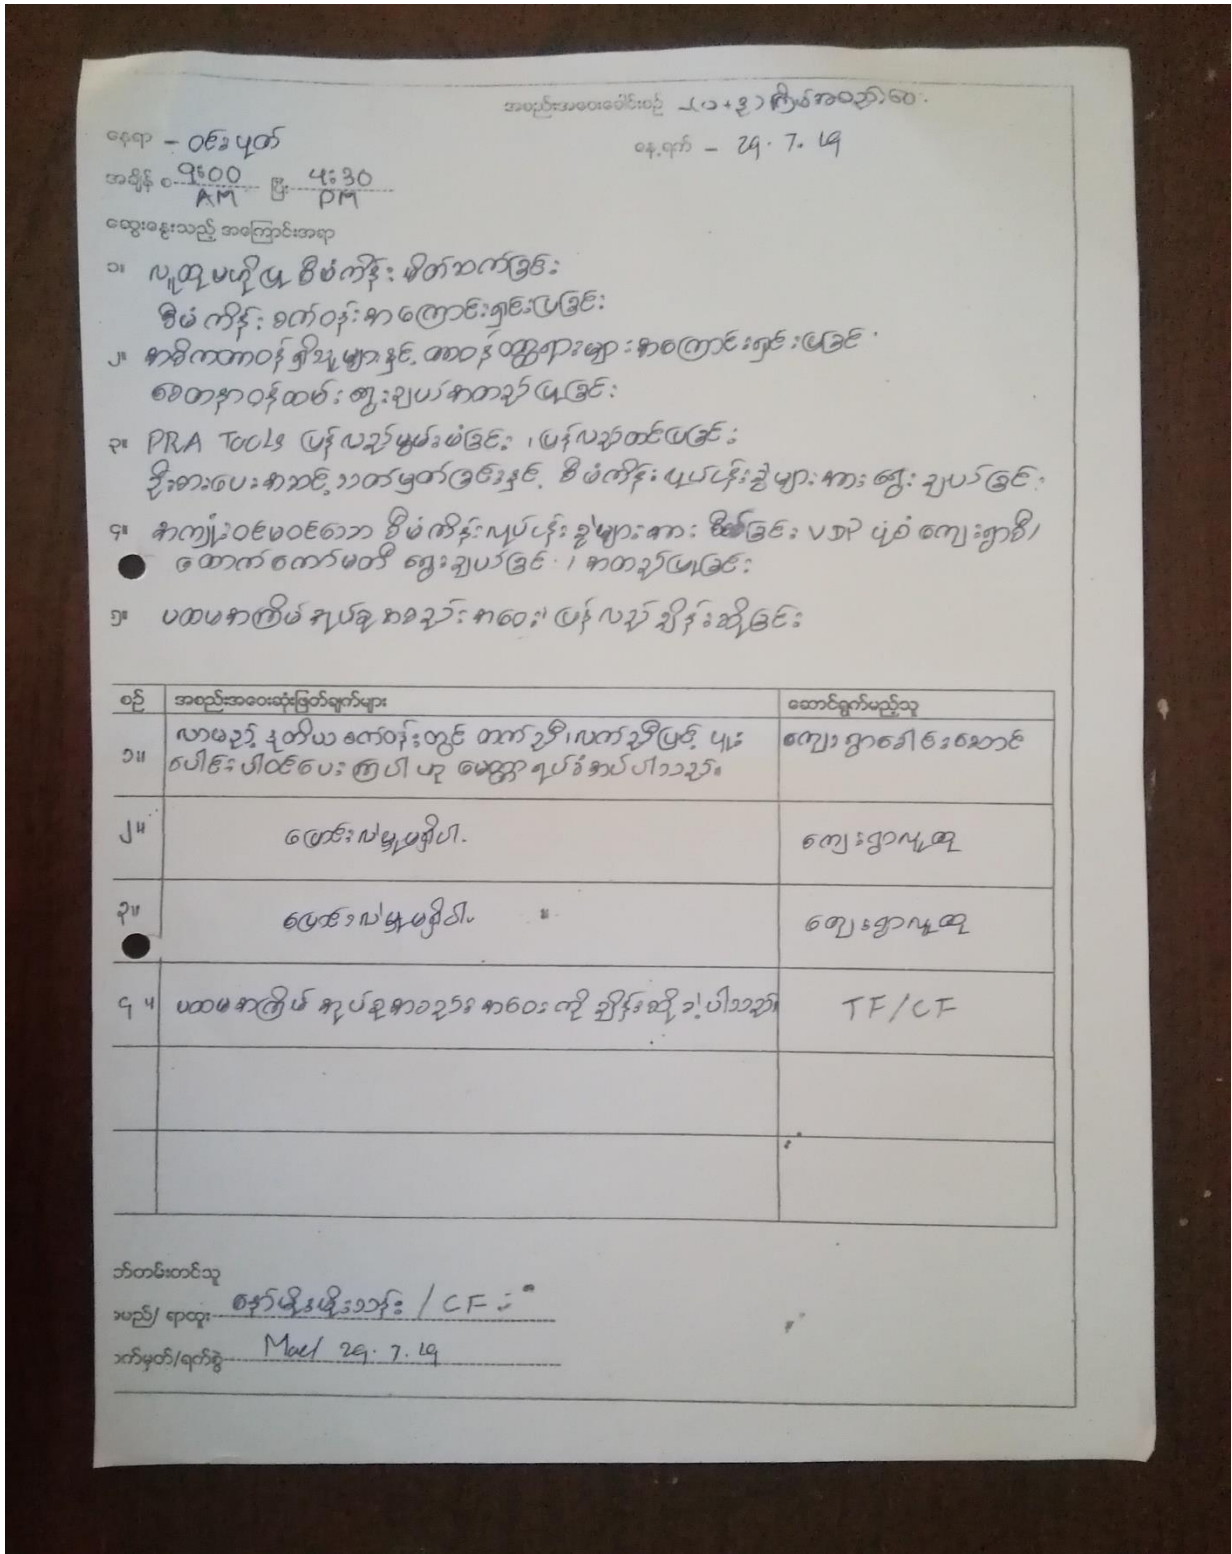 အစည်းအဝေးခေါင်းစဉ် - (၁+၃) ကြိမ်အစည်းအဝေး
နေရာ - ဝင်းပုတ်
နေ့ရက် - 29.7.19
အချိန် စ 9:00 AM ပြီး 4:30 PM
ဆွေးနွေးသည့် အကြောင်းအရာ
၁။ လူထုမဟိုပြု စီမံကိန်း မိတ်ဆက်ခြင်း
စီမံကိန်း စက်ဝန်းအကြောင်းရှင်းပြခြင်း
၂။ အဓိကတာဝန်ရှိသူများနှင့် တာဝန်ဝတ္တရားများအကြောင်းရှင်းပြခြင်း
စေတနာ့ဝန်ထမ်း ရွေးချယ်အတည်ပြုခြင်း
၃။ PRA Tools ပြန်လည်မွမ်းမံခြင်း ၊ ပြန်လည်တင်ပြခြင်း
ဦးစားပေးအဆင့်သတ်မှတ်ခြင်းနှင့် စီမံကိန်းလုပ်ငန်းခွဲများအား ရွေးချယ်ခြင်း
၄။ အကျုံးဝင်မဝင်သော စီမံကိန်းလုပ်ငန်းခွဲများအား စိစစ်ခြင်း VDP ပုံစံ ကျေးရွာစီ/
ထောက်ကော်မတီ ရွေးချယ်ခြင်း ၊ အတည်ပြုခြင်း
၅။ ပထမအကြိမ် အုပ်စုအစည်းအဝေး ပြန်လည်ချိန်းဆိုခြင်း
စဉ် အစည်းအဝေးဆုံးဖြတ်ချက်များ ဆောင်ရွက်မည့်သူ
၁။ လာမည့် ဒုတိယစက်ဝန်းတွင် တက်ညီ၊လက်ညီဖြင့် ပူး
ပေါင်းပါဝင်ပေးကြပါဟု မေတ္တာရပ်ခံအပ်ပါသည်။ ကျေးရွာခေါင်းဆောင်
၂။ ပြောင်းလဲမှုမရှိပါ. ကျေးရွာလူထု
၃။ ပြောင်းလဲမှုမရှိပါ. ကျေးရွာလူထု
၄။ ပထမအကြိမ် အုပ်စုအစည်းအဝေးကို ချိန်းဆိုခဲ့ပါသည်။ TF/CF
ဘ်တမ်းတင်သူ
အမည်/ ရာထူး နော်မိုးမိုးသန်း / CF
က်မှတ်/ရက်စွဲ 29.7.19